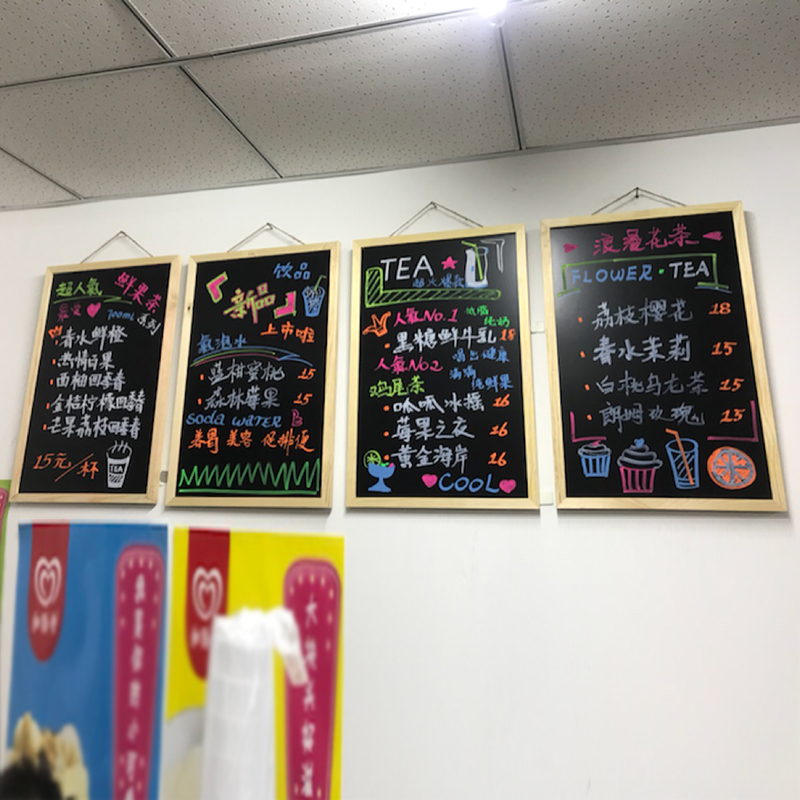 超人氣 鮮果茶
最愛 700ml 系列
春水鮮橙
热情百果
西柚四季春
金桔柠檬四季春
芒果荔枝四季春
15元/杯
TEA
饮品
新品
上市啦
氣泡水
蓝柑蜜桃 15
森林莓果 15
Soda WATER
养胃 美容 促排便
TEA
超火爆款
人氣No.1
纯奶
黑糖鲜牛乳 18
人氣No2 喝出健康
鸡尾茶 满满 纯鲜果
呱呱冰摇 16
莓果之夜 16
黄金海岸 16
COOL
浪漫花茶
FLOWER·TEA
荔枝樱花 18
春水茉莉 15
白桃乌龙茶 15
朗姆玫瑰 15